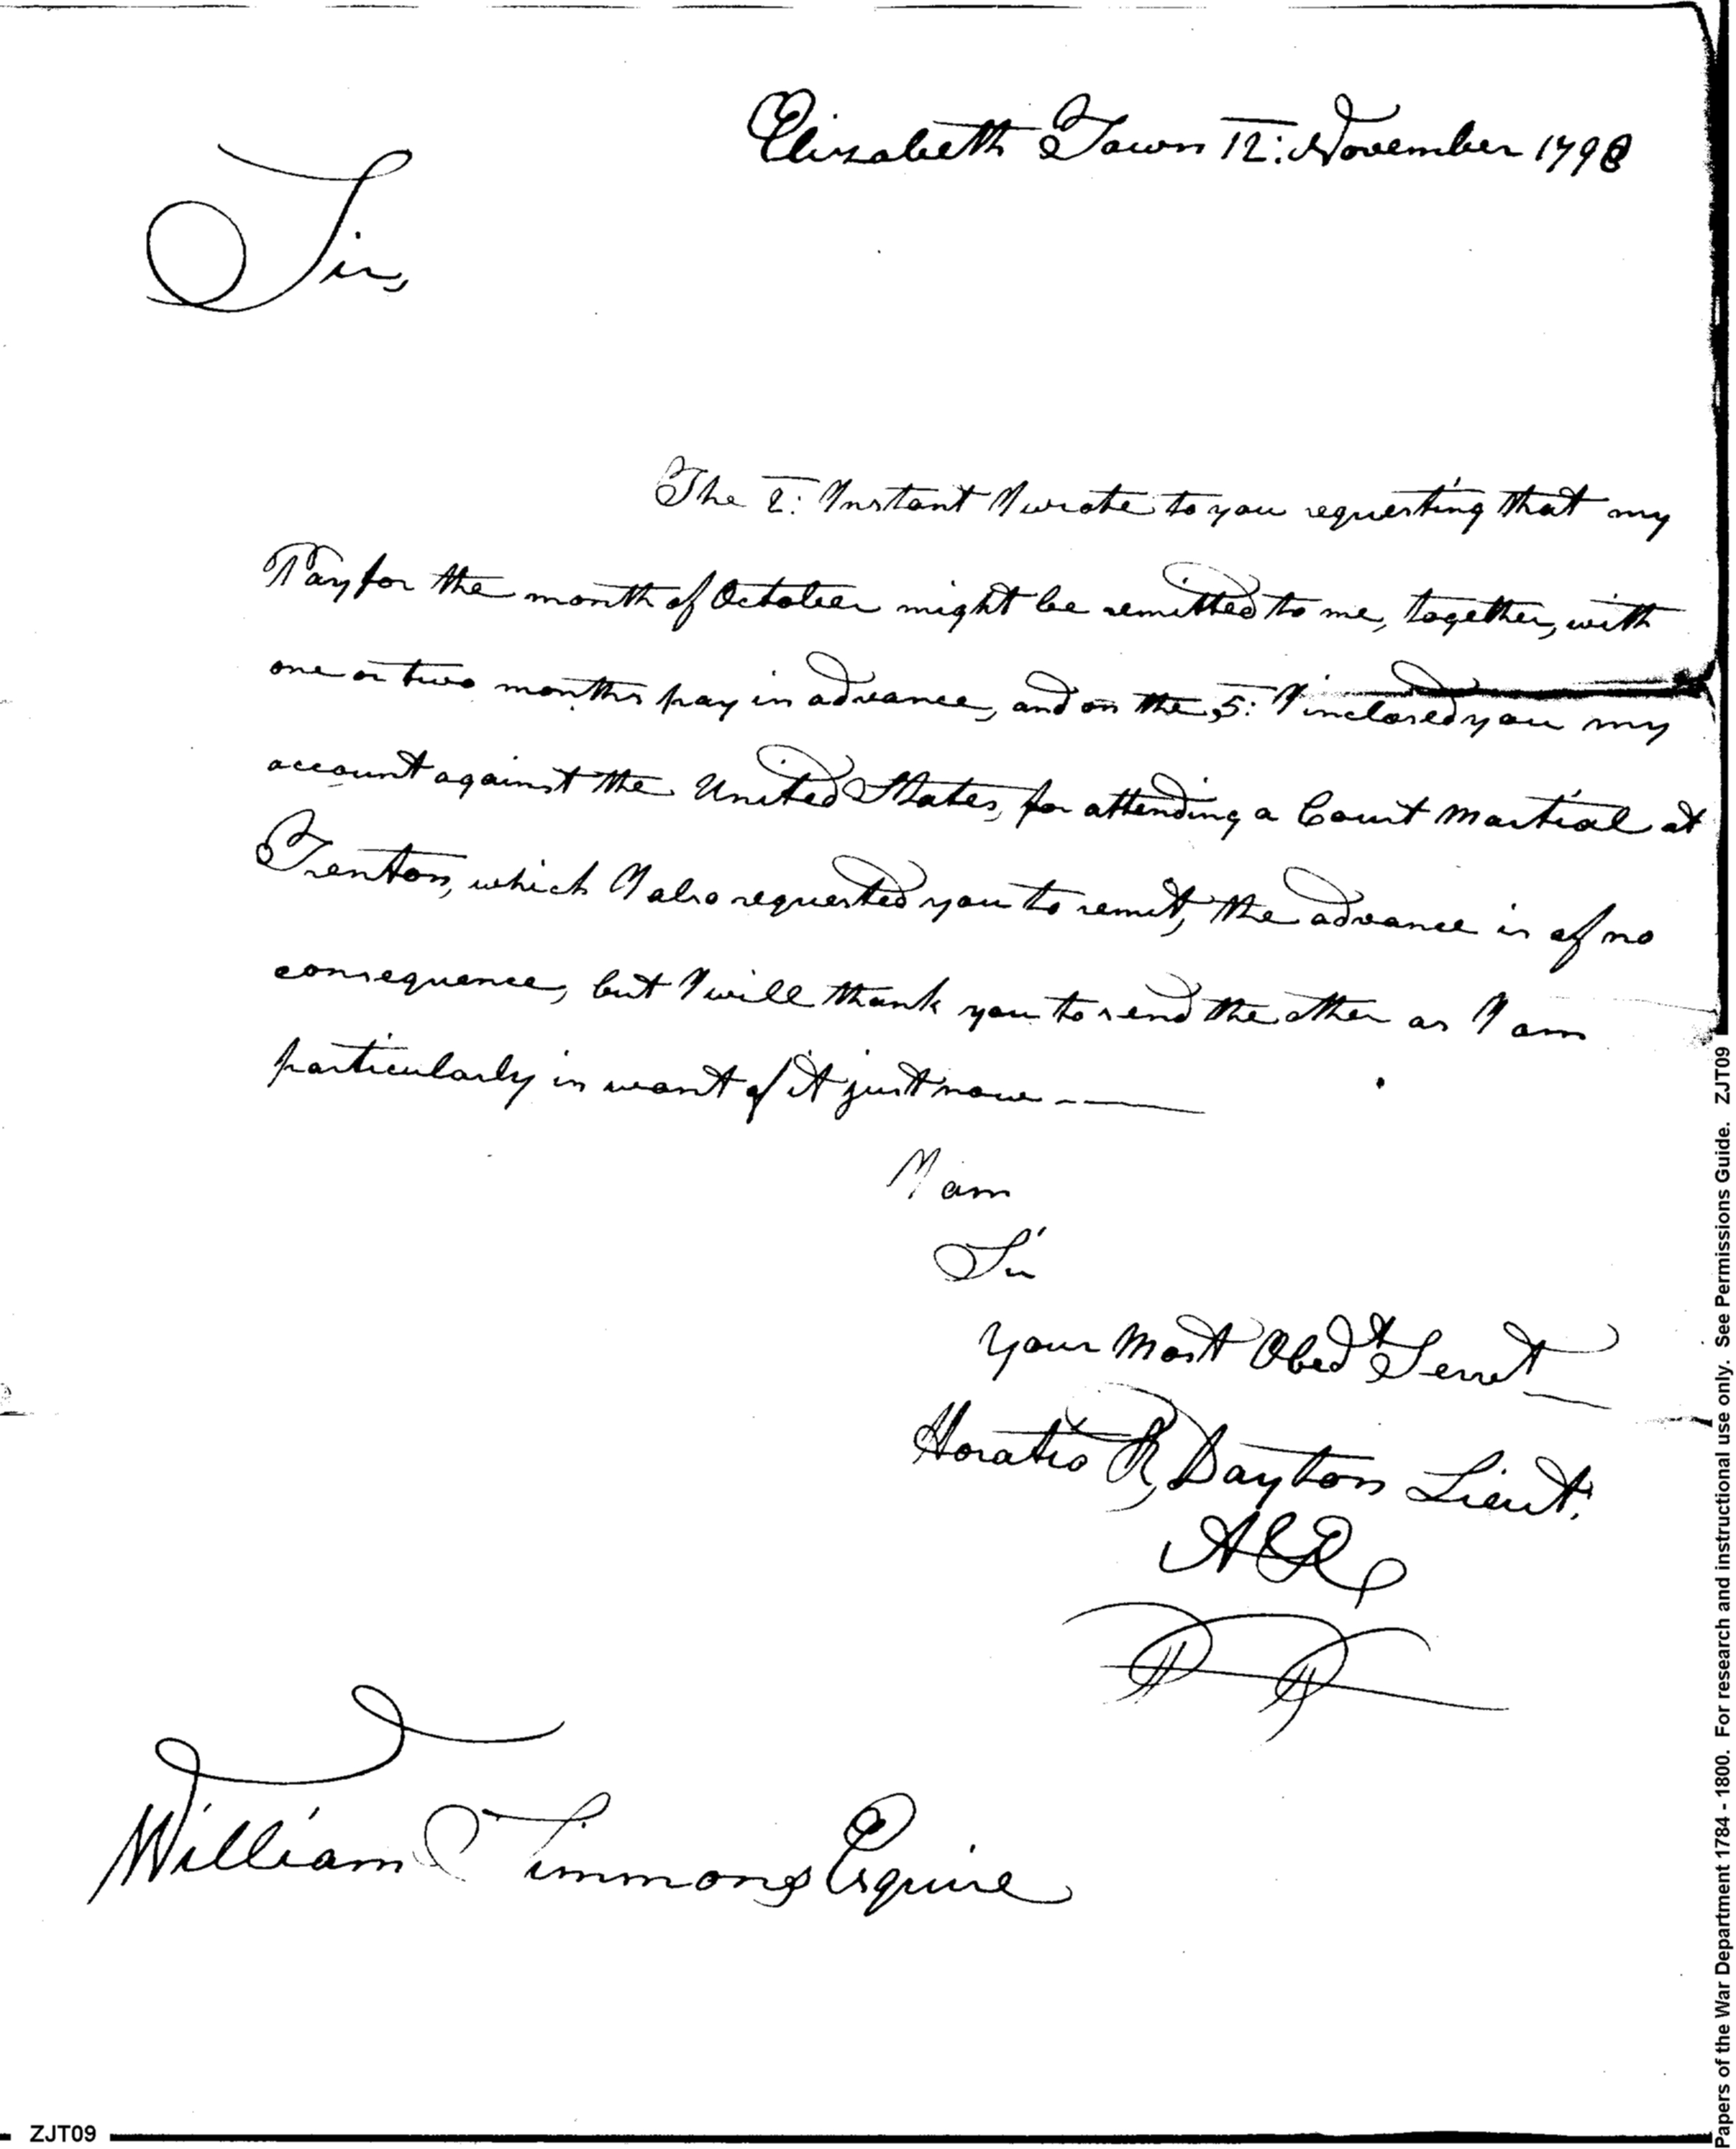 Elizabeth Town 12: November 1798
Sir,
The 2: Instant I wrote to you requesting that my
Pay for the month of October might be remitted to me, together, with
one or two months pay in advance, and on the 5: I inclosed you my
account against the United States, for attending a Court Martial at
Trenton, which I also requested you to remit, the advance is of no
consequence, but I will thank you to send the other as I am
particularly in want of it just now ——
I am
Sir
your Most Obedt Servt
Horatio R Dayton Lieut.
William Simmons Esquire
ZJT09
Papers of the War Department 1784 - 1800. For research and instructional use only. See Permissions Guide. ZJT09